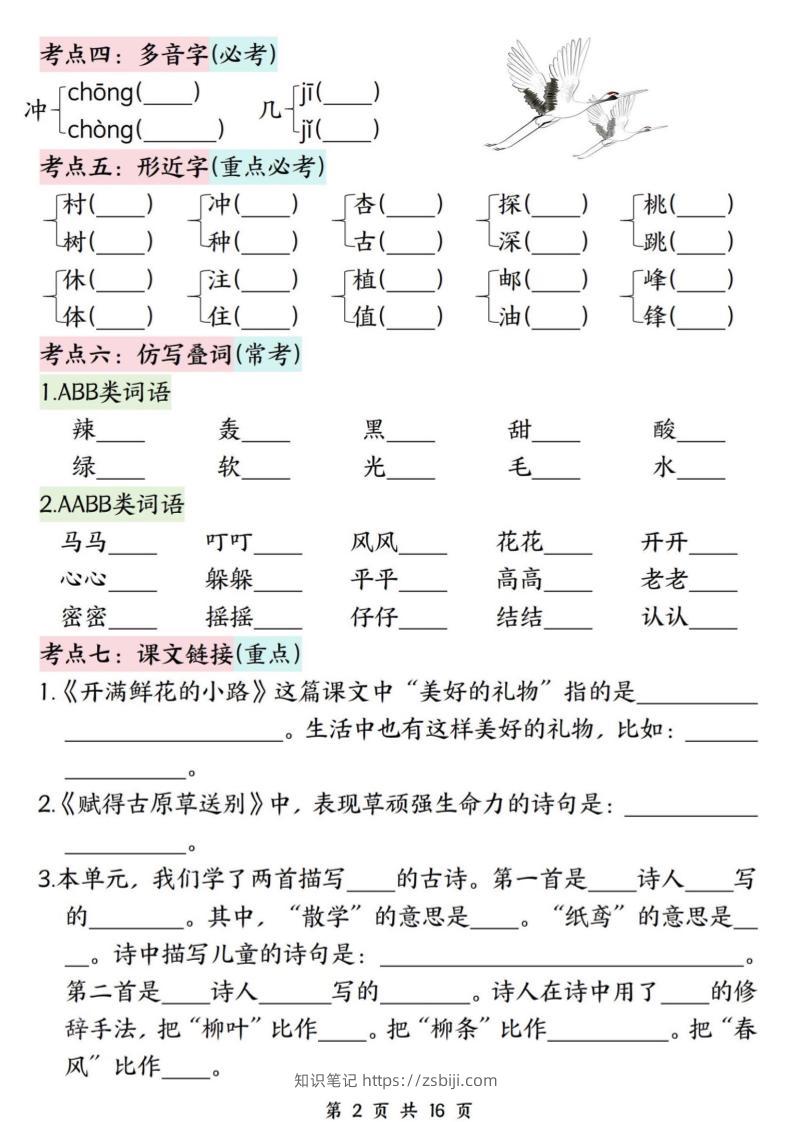 考点四：多音字(必考)
冲 chōng(____) chòng(______) 几 jī(____) jǐ(____)
考点五：形近字(重点必考)
村(____) 冲(____) 杏(____) 探(____) 桃(____)
树(____) 种(____) 古(____) 深(____) 跳(____)
休(____) 注(____) 植(____) 邮(____) 峰(____)
体(____) 住(____) 值(____) 油(____) 锋(____)
考点六：仿写叠词(常考)
1.ABB类词语
辣____ 轰____ 黑____ 甜____ 酸____
绿____ 软____ 光____ 毛____ 水____
2.AABB类词语
马马____ 叮叮____ 风风____ 花花____ 开开____
心心____ 躲躲____ 平平____ 高高____ 老老____
密密____ 摇摇____ 仔仔____ 结结____ 认认____
考点七：课文链接(重点)
1.《开满鲜花的小路》这篇课文中“美好的礼物”指的是__________
__________________。生活中也有这样美好的礼物，比如：______
__________。
2.《赋得古原草送别》中，表现草顽强生命力的诗句是：___________
__________。
3.本单元，我们学了两首描写____的古诗。第一首是____诗人____写
的________。其中，“散学”的意思是____。“纸鸢”的意思是__
__。诗中描写儿童的诗句是：______________________________。
第二首是____诗人______写的________。诗人在诗中用了____的修
辞手法，把“柳叶”比作____。把“柳条”比作__________。把“春
风”比作____。
知识笔记 https://zsbiji.com
第 2 页 共 16 页